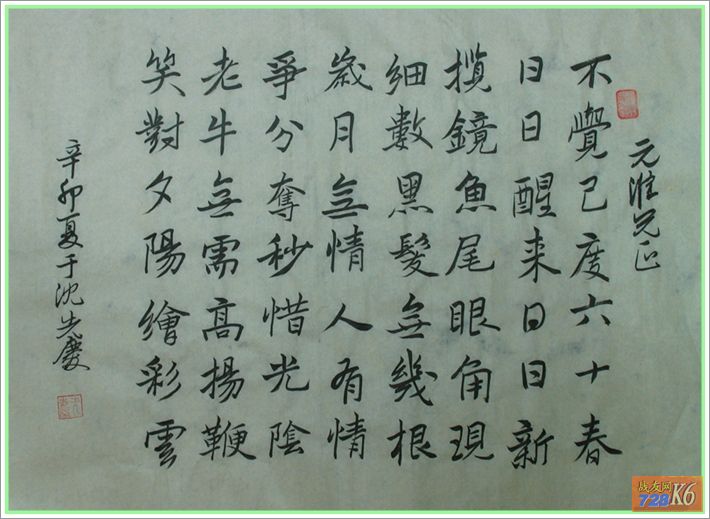 元淮兄正
不覺已度六十春
日日醒来日日新
揽鏡魚尾眼角現
細數黑髮無幾根
歲月無情人有情
爭分奪秒惜光陰
老牛無需高揚鞭
笑對夕陽繪彩雲
辛卯夏于沈先慶
战友网
728K6